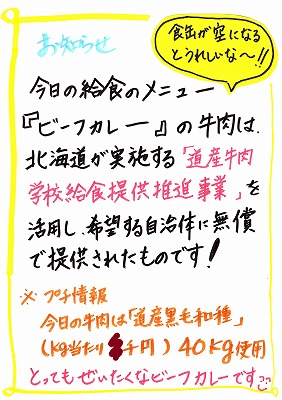 お知らせ
食缶が空になる
とうれしいな〜!!
今日の給食のメニュー
『ビーフカレー』の牛肉は、
北海道が実施する「道産牛肉
学校給食提供推進事業」を
活用し、希望する自治体に無償
で提供されたものです!
※ プチ情報
今日の牛肉は「道産黒毛和種」
(kg当たり 千円) 40kg使用
とってもぜいたくなビーフカレーです